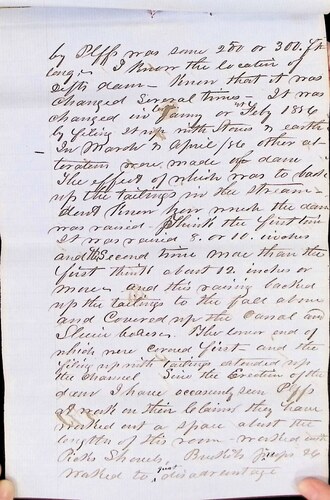 by Plffs was some 280 or 300. ft
long. I know the location of
Defts dam – Know that it was
changed several times – It was
changed in Jany or Feby 1856
by filing it up with Stones & earth
In March & April /56 other al-
terations were made of dam
The effect of which was to back
up the tailings in the stream –
dont know how much the dam
was raised – I think the first time
It was raised 8. or 10. inches
and the second time mor than the
first think about 12. inches or
more and this raising backed
up the tailings to the fall above
and covered up the canal and
Sluice boxes. The lower end of
which were covered first and the
filing up with tailings extended up
the channel. Since the Erection of the
dam I have occasionly seen Plffs
at work on their claims they have
worked out a space about the
length of this room – worked with
Picks Shovels, Buckets Pumps &c
worked to great disadvantage